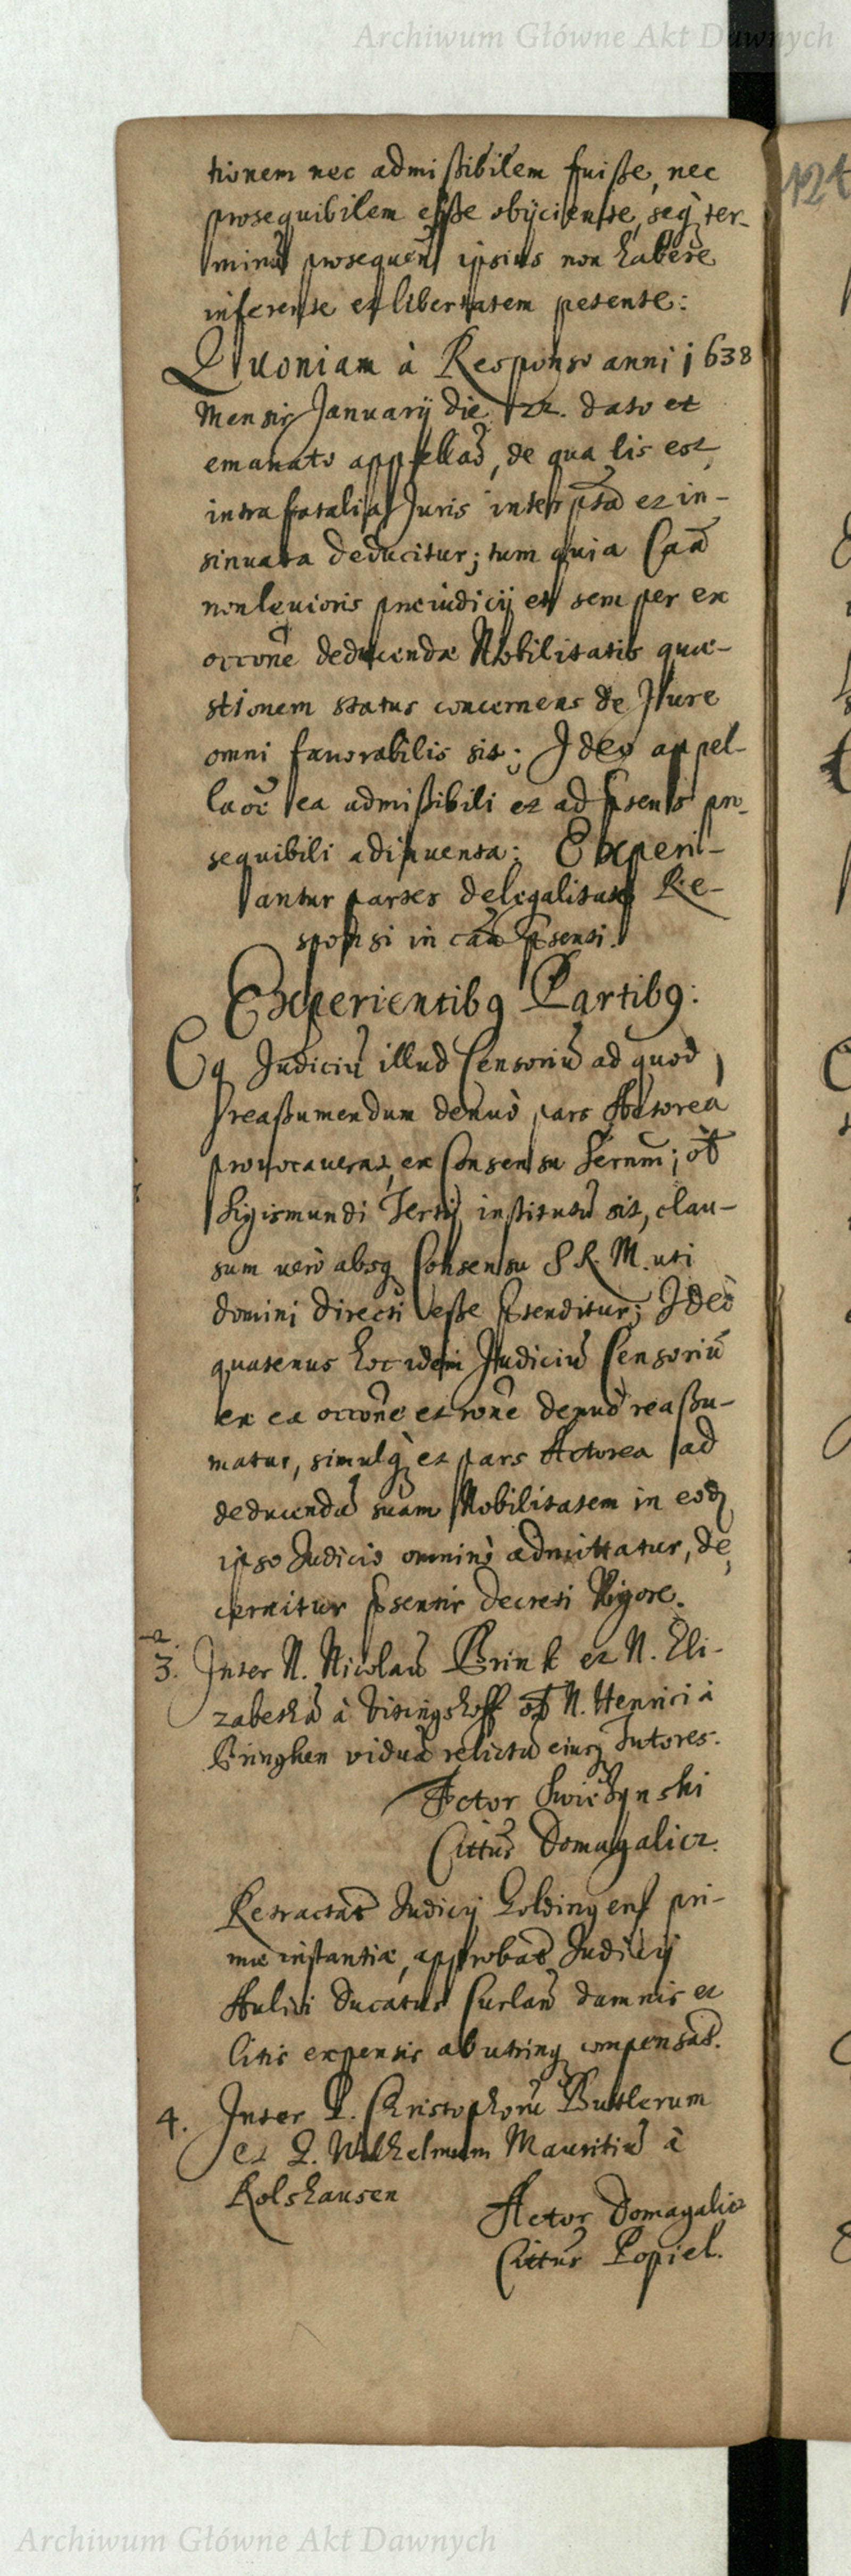 Archiwum Główne Akt Dawnych
tionem nec admissibilem fuisse, nec
prosequibilem esse obijciente, seq ter-
minũ prosequen ipsius non habere
inferente et libertatem petente:
Quoniam à Responso anni 1638
Mensis Januarij die 22. dato et
emanato appellaõ, de qua lis est,
intra fatalia Juris interpta et in-
sinuata deducitur; tum quia Caã
non levioris preiudicij et semper ex
occõne deducendæ Nobilitatis quæ-
stionem status concernens de Jure
omni favorabilis sit; Ideo appel-
laõe ea admissibili et ad psens pro-
sequibili adinventa: Experi-
antur partes de legalitate Re-
sponsi in caã psenti.
Experientibq Partibq:
Eq Judiciũ illud Censoriũ ad quod
reassumendum denuò pars Actorea
provocaverat, ex Consensu Sernm; ol
Sigismundi Tertij institutũ sit, clau-
sum verò absq Consensu S R. M. uti
domini directi esse ptenditur; Ideò
quatenus hoc idem Judiciũ Censoriũ
ex ea occõne et rõne denuò reassu-
matur, simulq et pars Actorea ad
deducendã suam Nobilitatem in eod
ipso Judicio omninò admittatur, de
cernitur psentis decreti Vigore.
3. Inter N. Nicolaũ Brink et N. Eli-
zabethã à Vitingshoff ol N. Henrici à
Bringhen viduã relictã eiusq Tutores.
Actor Swiedzynski
Cittus Domagalicz.
Retractat Judicij Goldingens pri-
mæ instantiæ, approbat Judicij
Aulici Ducatus Curlan damnis et
litis expensis ab utrinq compensat.
4. Inter G. Christophorũ Butlerum
et G. Wilhelmum Mauritiũ à
Rolshausen
Actor Domagalicz
Cittus Popiel.
Archiwum Główne Akt Dawnych